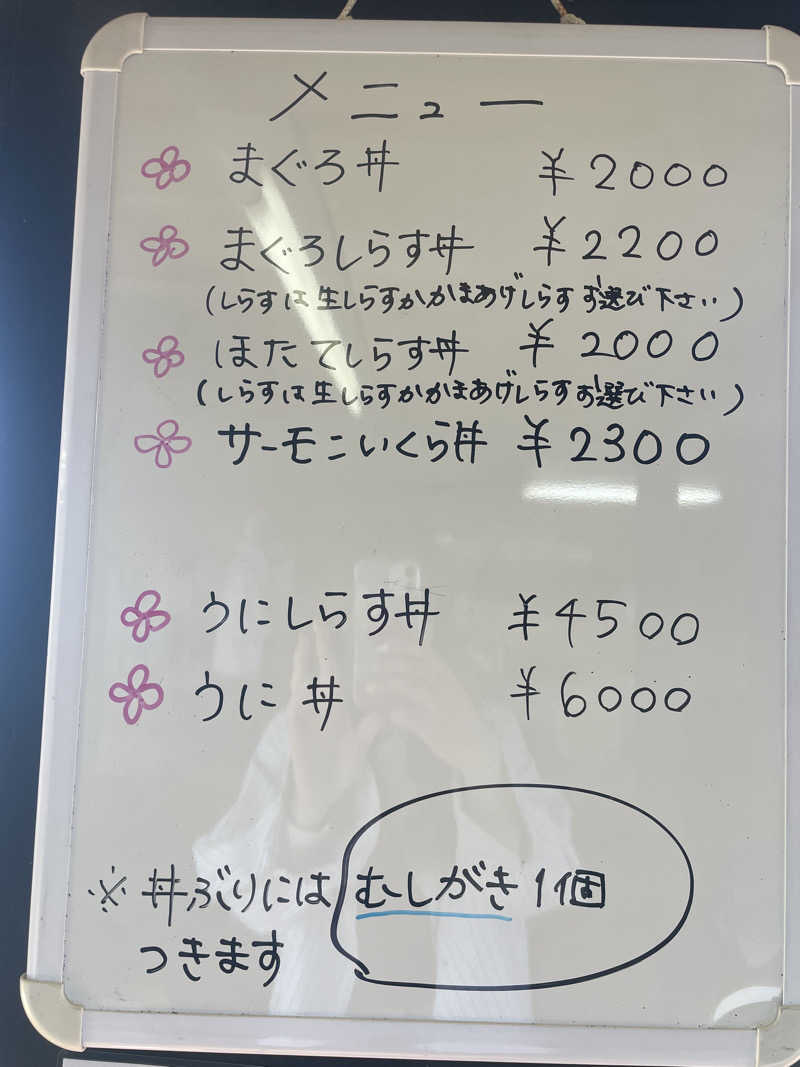 メニュー
まぐろ丼 ¥2000
まぐろしらす丼 ¥2200
(しらすは生しらすかかまあげしらすお選び下さい)
ほたてしらす丼 ¥2000
(しらすは生しらすかかまあげしらすお選び下さい)
サーモンいくら丼 ¥2300
うにしらす丼 ¥4500
うに丼 ¥6000
※丼ぶりにはむしがき1個
つきます